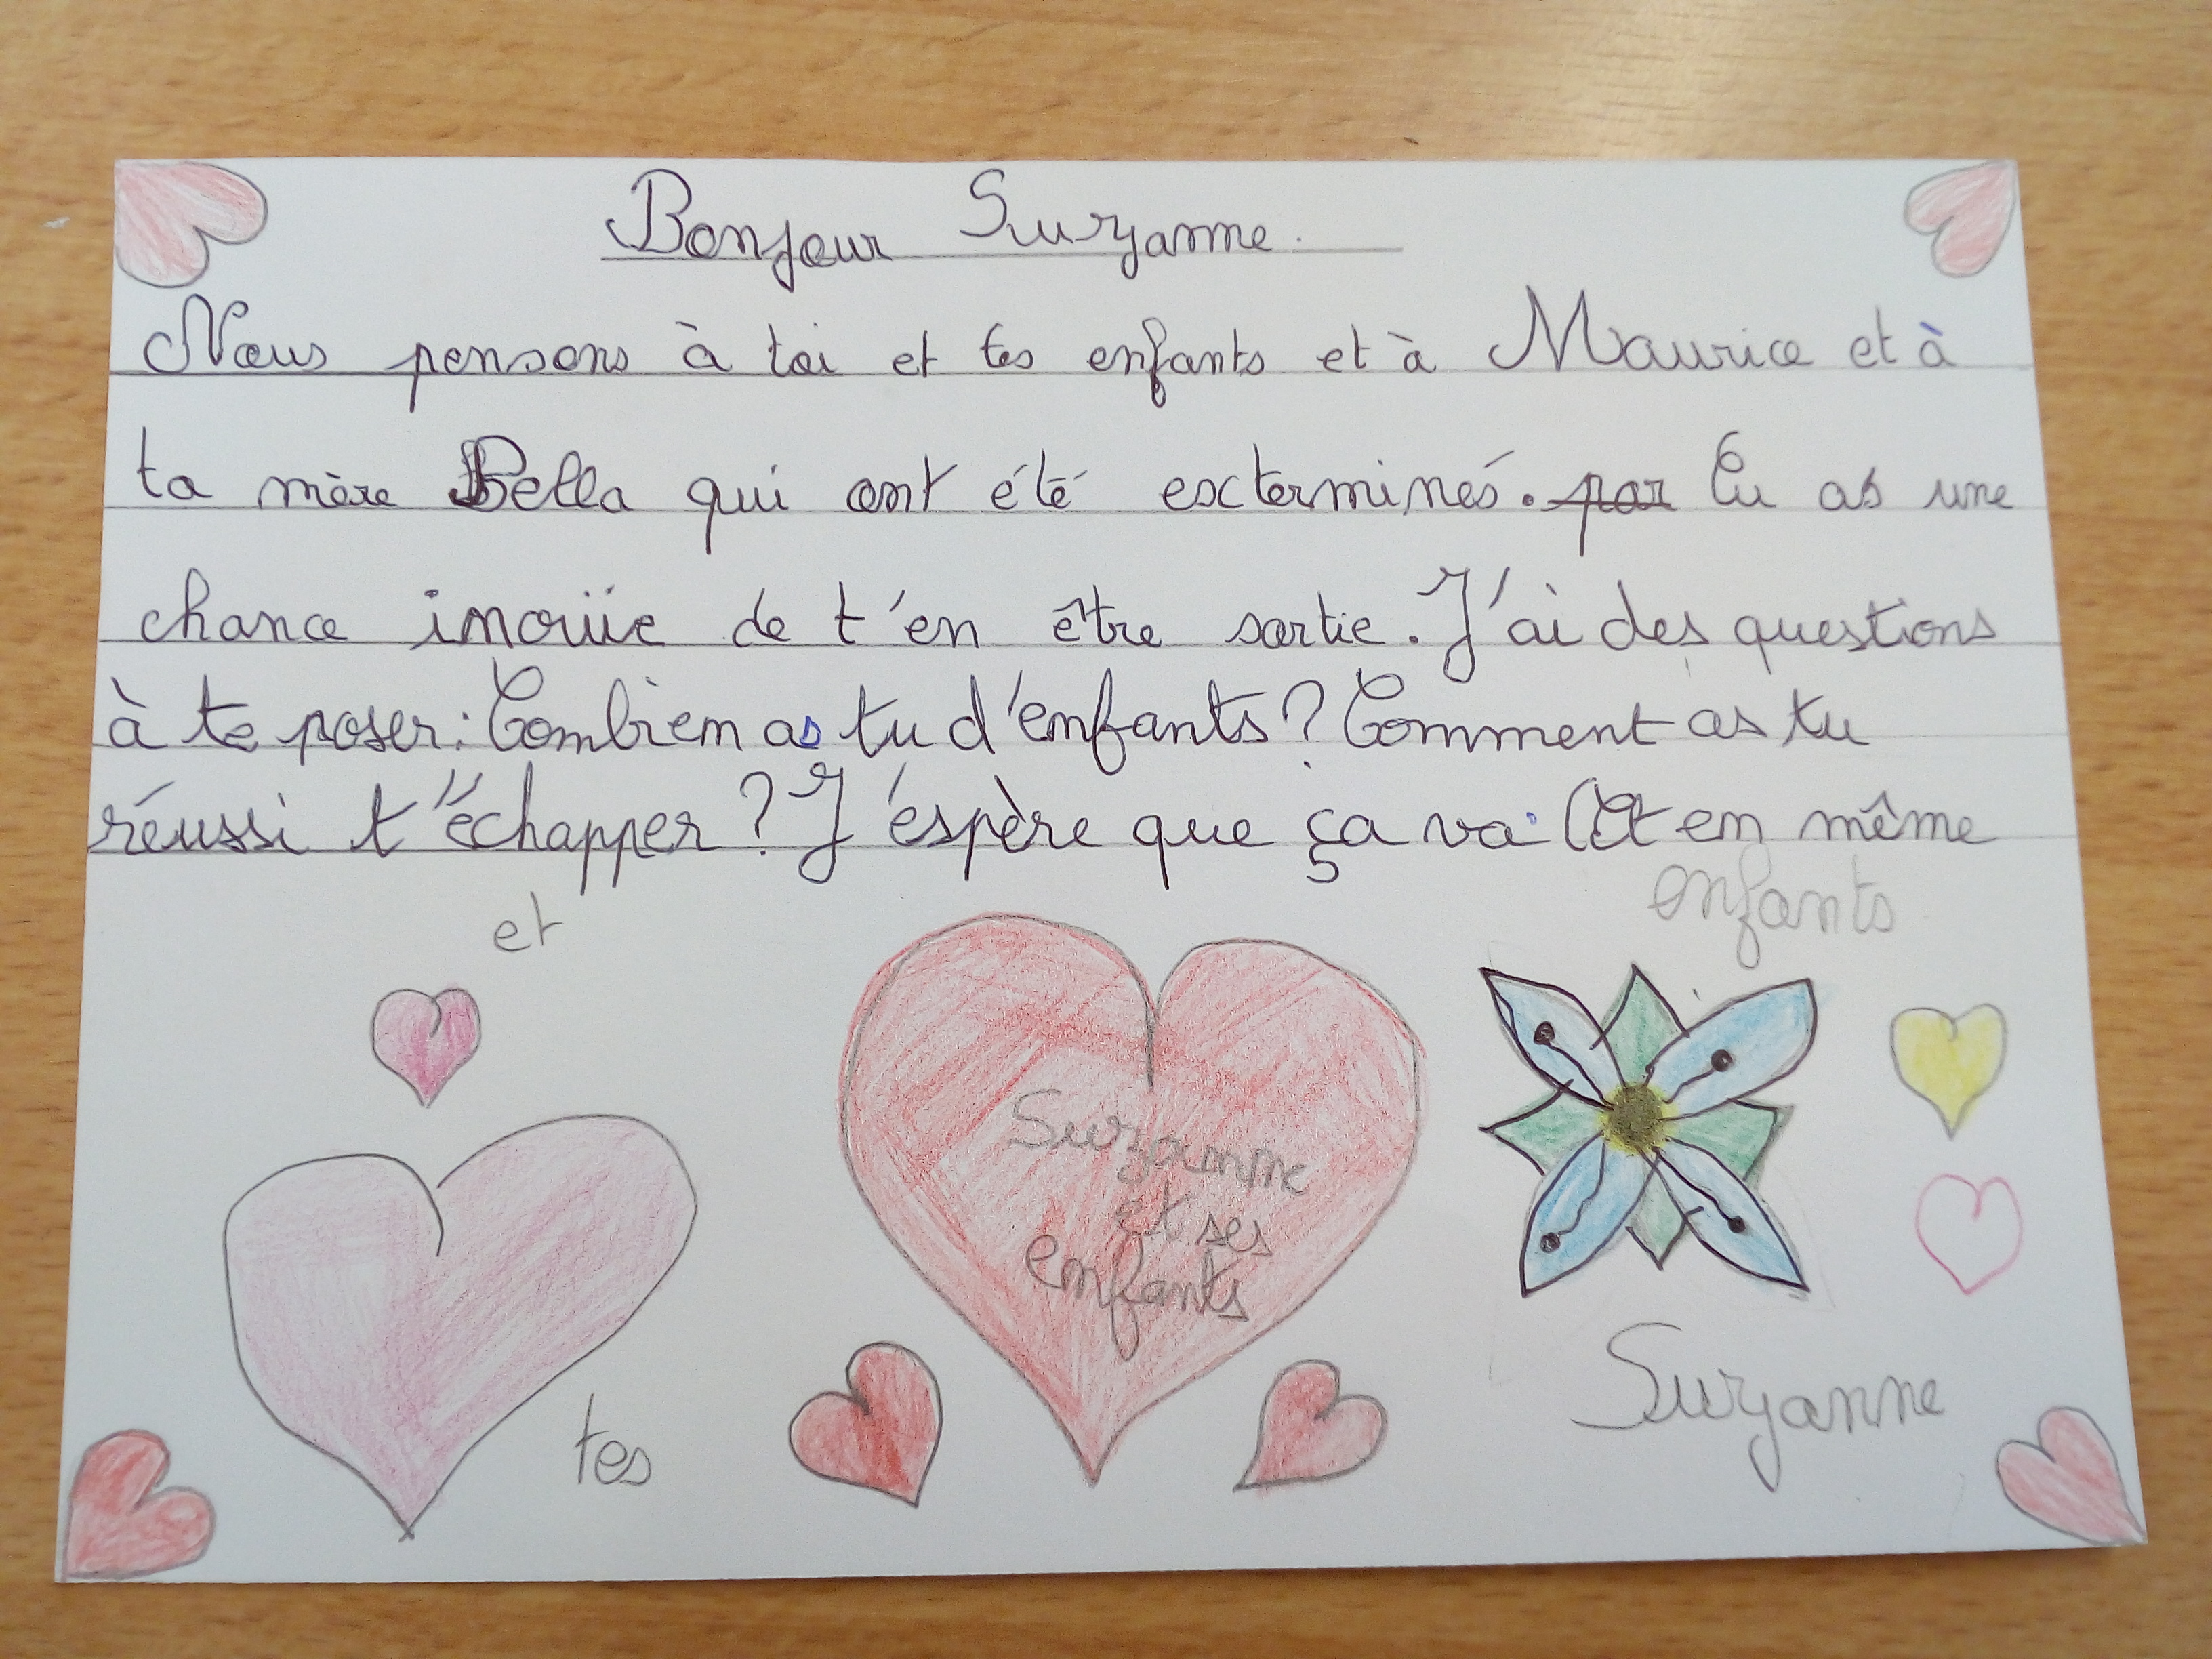 Bonjour Suzanne.
Nous pensons à toi et tes enfants et à Maurice et à
ta mère Bella qui ont été exterminés. par Tu as une
chance inouïe de t'en être sortie. J'ai des questions
à te poser : Combien as tu d'enfants ? Comment as tu
réussi t'échapper ? J'éspère que ça va. (Et en même
et
enfants
Suzanne
et ses
enfants
tes
Suzanne